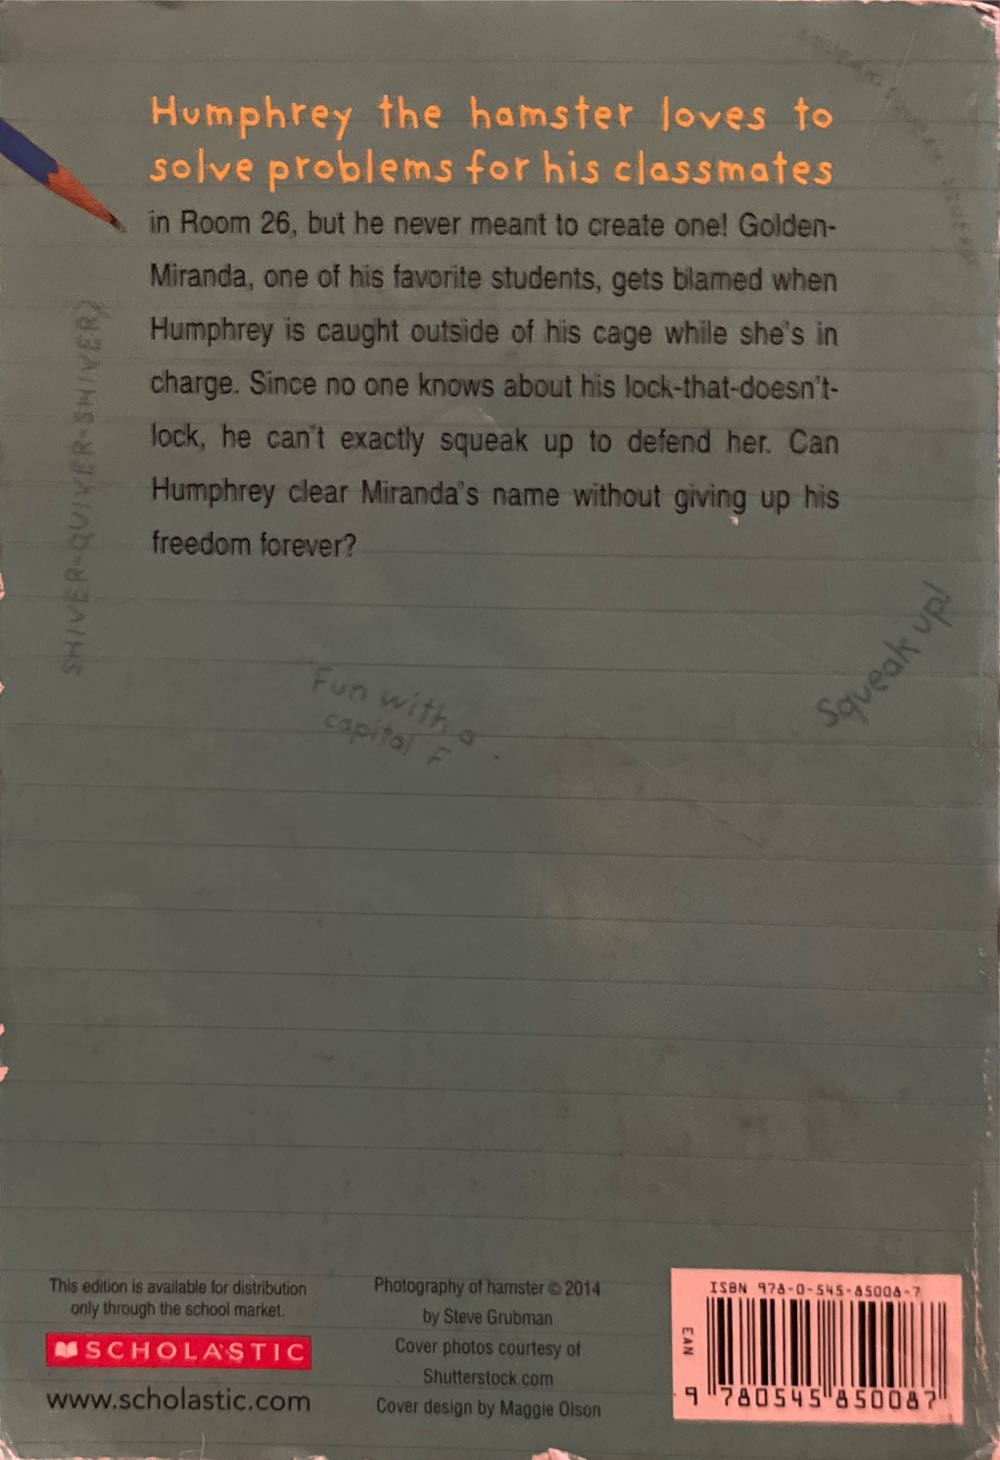 Humphrey the hamster loves to
solve problems for his classmates
in Room 26, but he never meant to create one! Golden-
Miranda, one of his favorite students, gets blamed when
Humphrey is caught outside of his cage while she's in
charge. Since no one knows about his lock-that-doesn't-
lock, he can't exactly squeak up to defend her. Can
Humphrey clear Miranda's name without giving up his
freedom forever?
SHIVER-QUIVER-SHIVER
Squeak up!
Fun with a
capital F
This edition is available for distribution
only through the school market.
SCHOLASTIC
www.scholastic.com
Photography of hamster © 2014
by Steve Grubman
Cover photos courtesy of
Shutterstock.com
Cover design by Maggie Olson
ISBN 978-0-545-85008-7
EAN
9 780545 850087